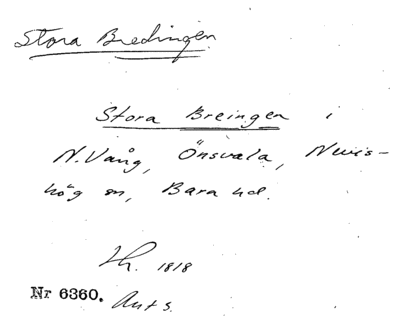 Stora Bredingen
Stora Breingen i
N. Vång, Önsvala, Nevis-
hög sn, Bara hd.
Lh. 1818
Nr 6360. Ants.